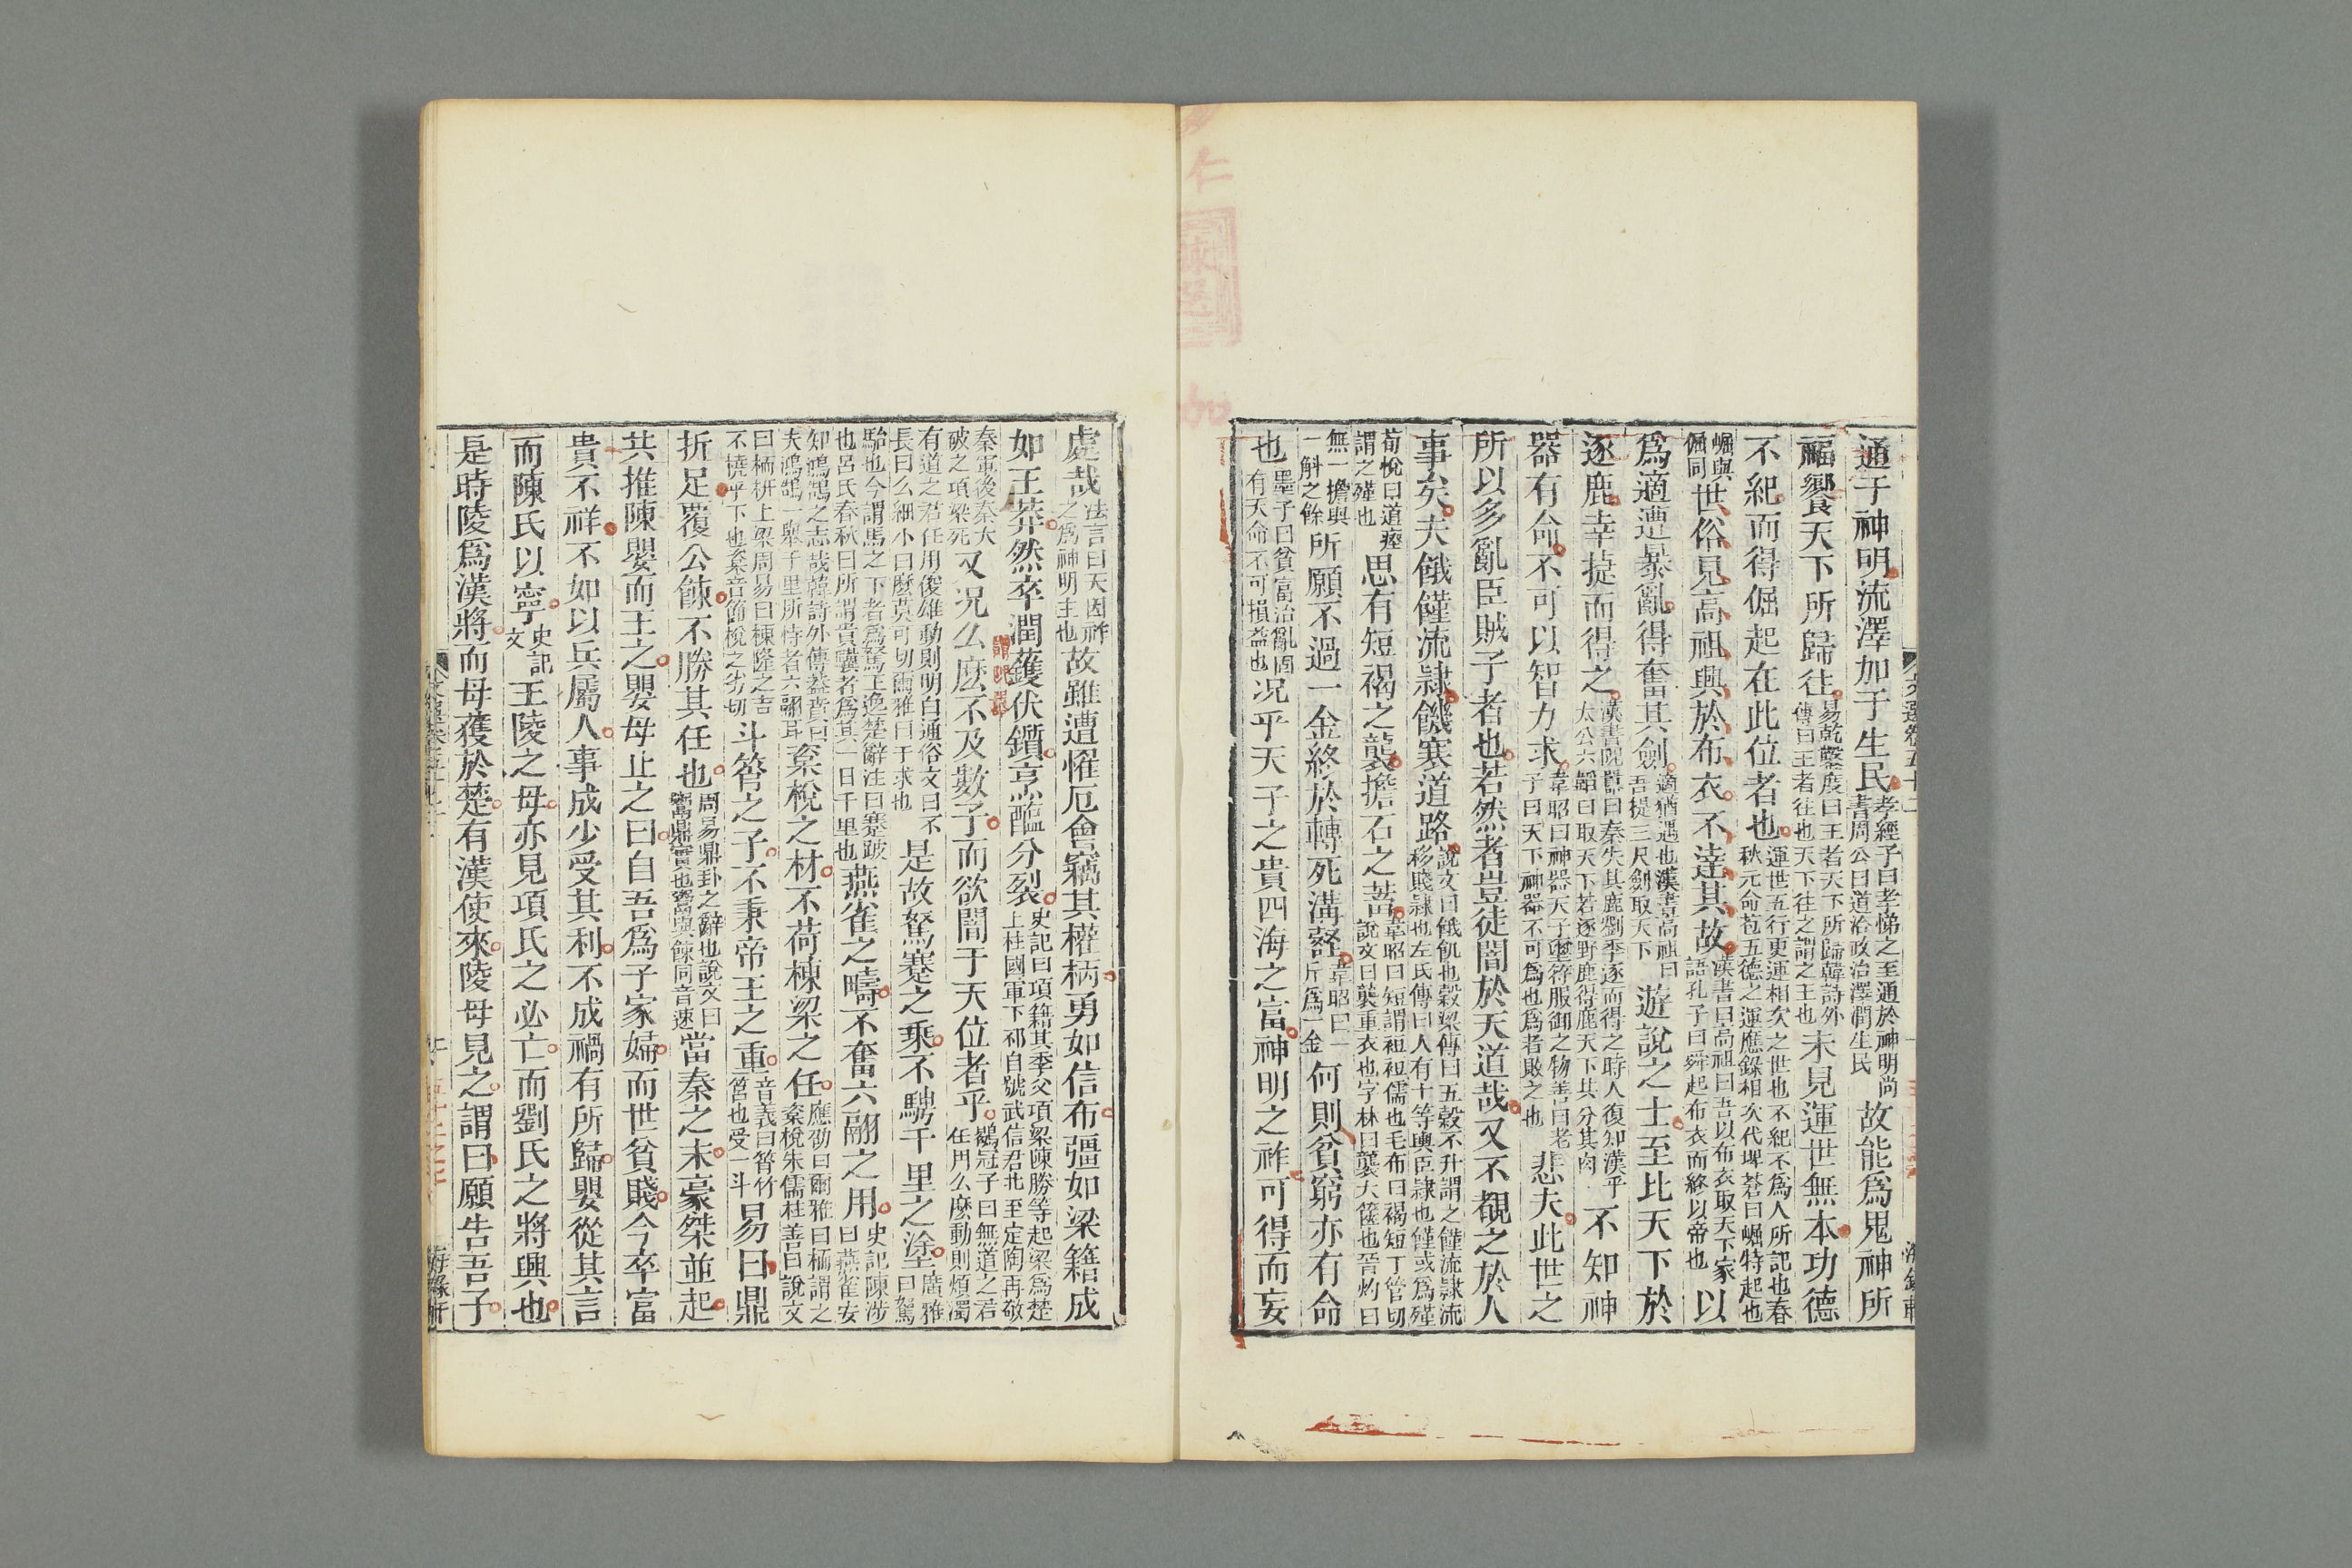 通于神明流澤加于生民孝經子曰孝悌之至通於神明尚書周公曰道洽政治澤潤生民故能爲鬼神所
福饗天下所歸往易乾鑿度曰王者天下所歸韓詩外傳曰王者往也天下往之謂之王也未見運世無本功德
不紀而得倔起在此位者也運世五行更運相次之世也不紀不爲人所記也春秋元命苞五德之運應錄相次代埤蒼曰崛特起也
崛與倔同世俗見高祖興於布衣不達其故漢書曰高祖曰吾以布衣取天下家語孔子曰舜起布衣而終以帝也以
爲適遭暴亂得奮其劒適猶遇也漢書高祖曰吾提三尺劒取天下遊說之士至比天下於
逐鹿幸捷而得之漢書蒯通曰秦失其鹿劉季逐而得之時人復知漢乎太公六韜曰取天下若逐野鹿得鹿天下共分其肉不知神
器有命不可以智力求韋昭曰神器天子璽符服御之物善曰老子曰天下神器不可爲也爲者敗之也悲夫此世之
所以多亂臣賊子者也若然者豈徒闇於天道哉又不覩之於人
事矣夫餓饉流隷飢寒道路說文曰餓飢也穀梁傳曰五穀不升謂之饉流隷流移賤隷也左氏傳曰人有十等輿臣隷也饉或爲殣
荀悅曰道瘞謂之殣也思有短褐之襲擔石之蓄韋昭曰短謂裋裋襦也毛布曰褐短丁管切說文曰襲重衣也字林曰襲大篋也晉灼曰
無一擔與一斛之餘所願不過一金終於轉死溝壑韋昭曰一斤爲一金何則貧窮亦有命
也墨子曰貧富治亂固有天命不可損益也况乎天子之貴四海之富神明之祚可得而妄
處哉法言曰天因祚之爲神明主也故雖遭罹厄會竊其權柄勇如信布彊如梁籍成
如王莽然卒潤鑊伏鑕烹醢分裂史記曰項籍其季父項梁陳勝等起梁爲楚上柱國軍下邳自號武信君北至定陶再敬
秦軍後秦大破之項梁死又况么麼不及數子而欲闇于天位者乎鶡冠子曰無道之君任用么麼動則煩濁
有道之君任用俊雄動則明白通俗文曰不長曰么細小曰麼莫可切爾雅曰于求也是故駑蹇之乗不騁千里之塗廣雅曰駑
駘也今謂馬之下者爲駑王逸楚辭注曰蹇跛也呂氏春秋曰所謂貴驥者爲其一日千里也燕雀之疇不奮六翮之用史記陳涉曰燕雀安
知鴻鵠之志哉韓詩外傳蓋胥曰夫鴻鵠一舉千里所恃者六翮耳楶梲之材不荷棟梁之任應劭曰爾雅曰栭謂之楶梲朱儒柱善曰說文
曰栭枅上梁周易曰棟隆之吉不橈乎下也楶音節梲之劣切斗筲之子不秉帝王之重音義曰筲竹筥也受一斗易曰鼎
折足覆公餗不勝其任也周易鼎卦之辭也說文曰鬻鼎實也鬻與餗同音速當秦之末豪桀並起
共推陳嬰而王之嬰母止之曰自吾爲子家婦而世貧賤今卒富
貴不祥不如以兵屬人事成少受其利不成禍有所歸嬰從其言
而陳氏以寧史記文王陵之母亦見項氏之必亡而劉氏之將興也
是時陵爲漢將而母獲於楚有漢使來陵母見之謂曰願告吾子